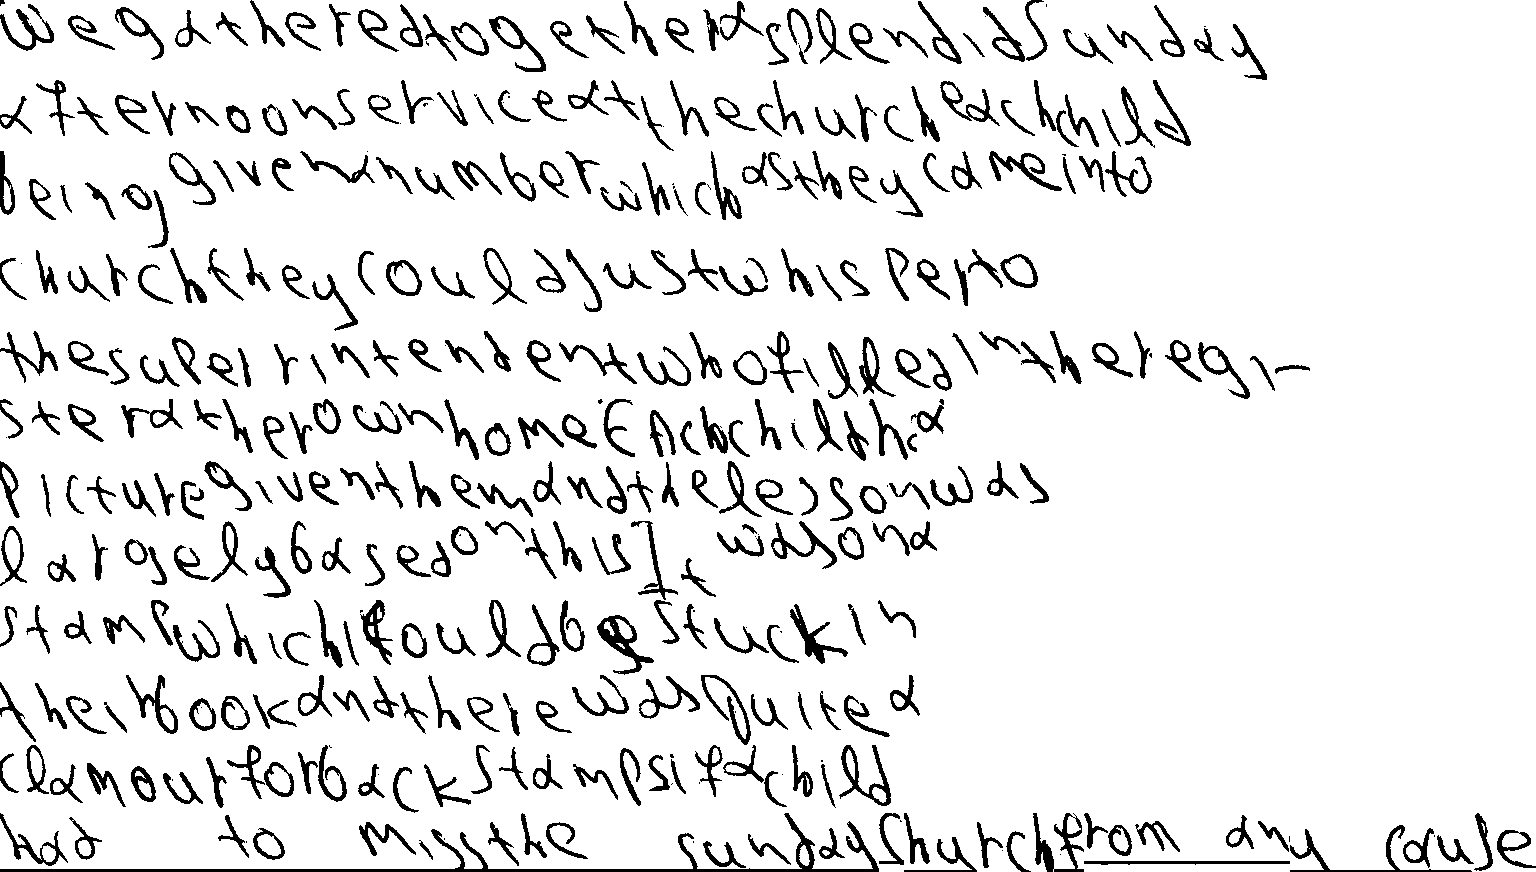 we gathered together a splendid Sunday
afternoon service at the church each child
being given a number which as they came into
church they could just whisper to
the superintendent who filled in the regi-
ster at her own home Each child had a
picture given them and the lesson was
largely based on this It was on a
stamp which could be stuck in
their book and there was quite a
clamour for back stamps if a child
had to miss the sunday church from any cause